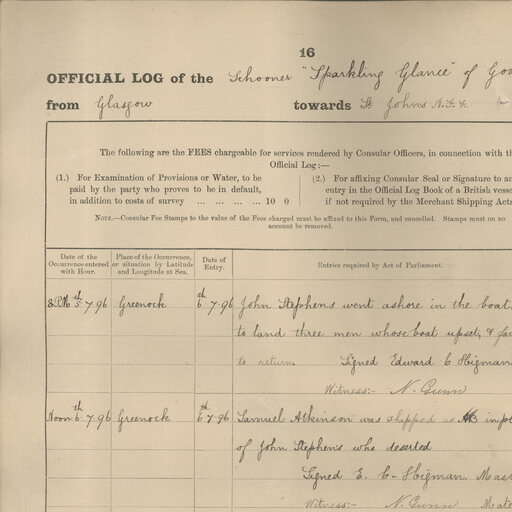 16
OFFICIAL LOG of the Schooner "Sparkling Glance" of
from Glasgow towards St Johns N.F. &
The following are the FEES chargeable for services rendered by Consular Officers, in connection with
Official Log:—
(1.) For Examination of Provisions or Water, to be
paid by the party who proves to be in default,
in addition to costs of survey ... ... ... ... 10 0
(2.) For affixing Consular Seal or Signature to
entry in the Official Log Book of a British
if not required by the Merchant Shipping Acts
NOTE.—Consular Fee Stamps to the value of the Fees charged must be affixed to this Form, and cancelled. Stamps must on no
account be removed.
Date of the
Occurrence entered
with Hour.
Place of the Occurrence,
or situation by Latitude
and Longitude at Sea.
Date of
Entry.
Entries required by Act of Parliament.
8 P.M 5th 7.96 Greenock 6th 7.96 John Stephens went ashore in the boat
to land three men whose boat upset, &
to return. Signed Edward C Higman
Witness:- N. Gunn
Noon 6th 7.96 Greenock 6th 7.96 Samuel Atkinson was shipped as AB in
of John Stephens who deserted
Signed E. C. Higman. Mast
Witness:- N. Gunn Mate